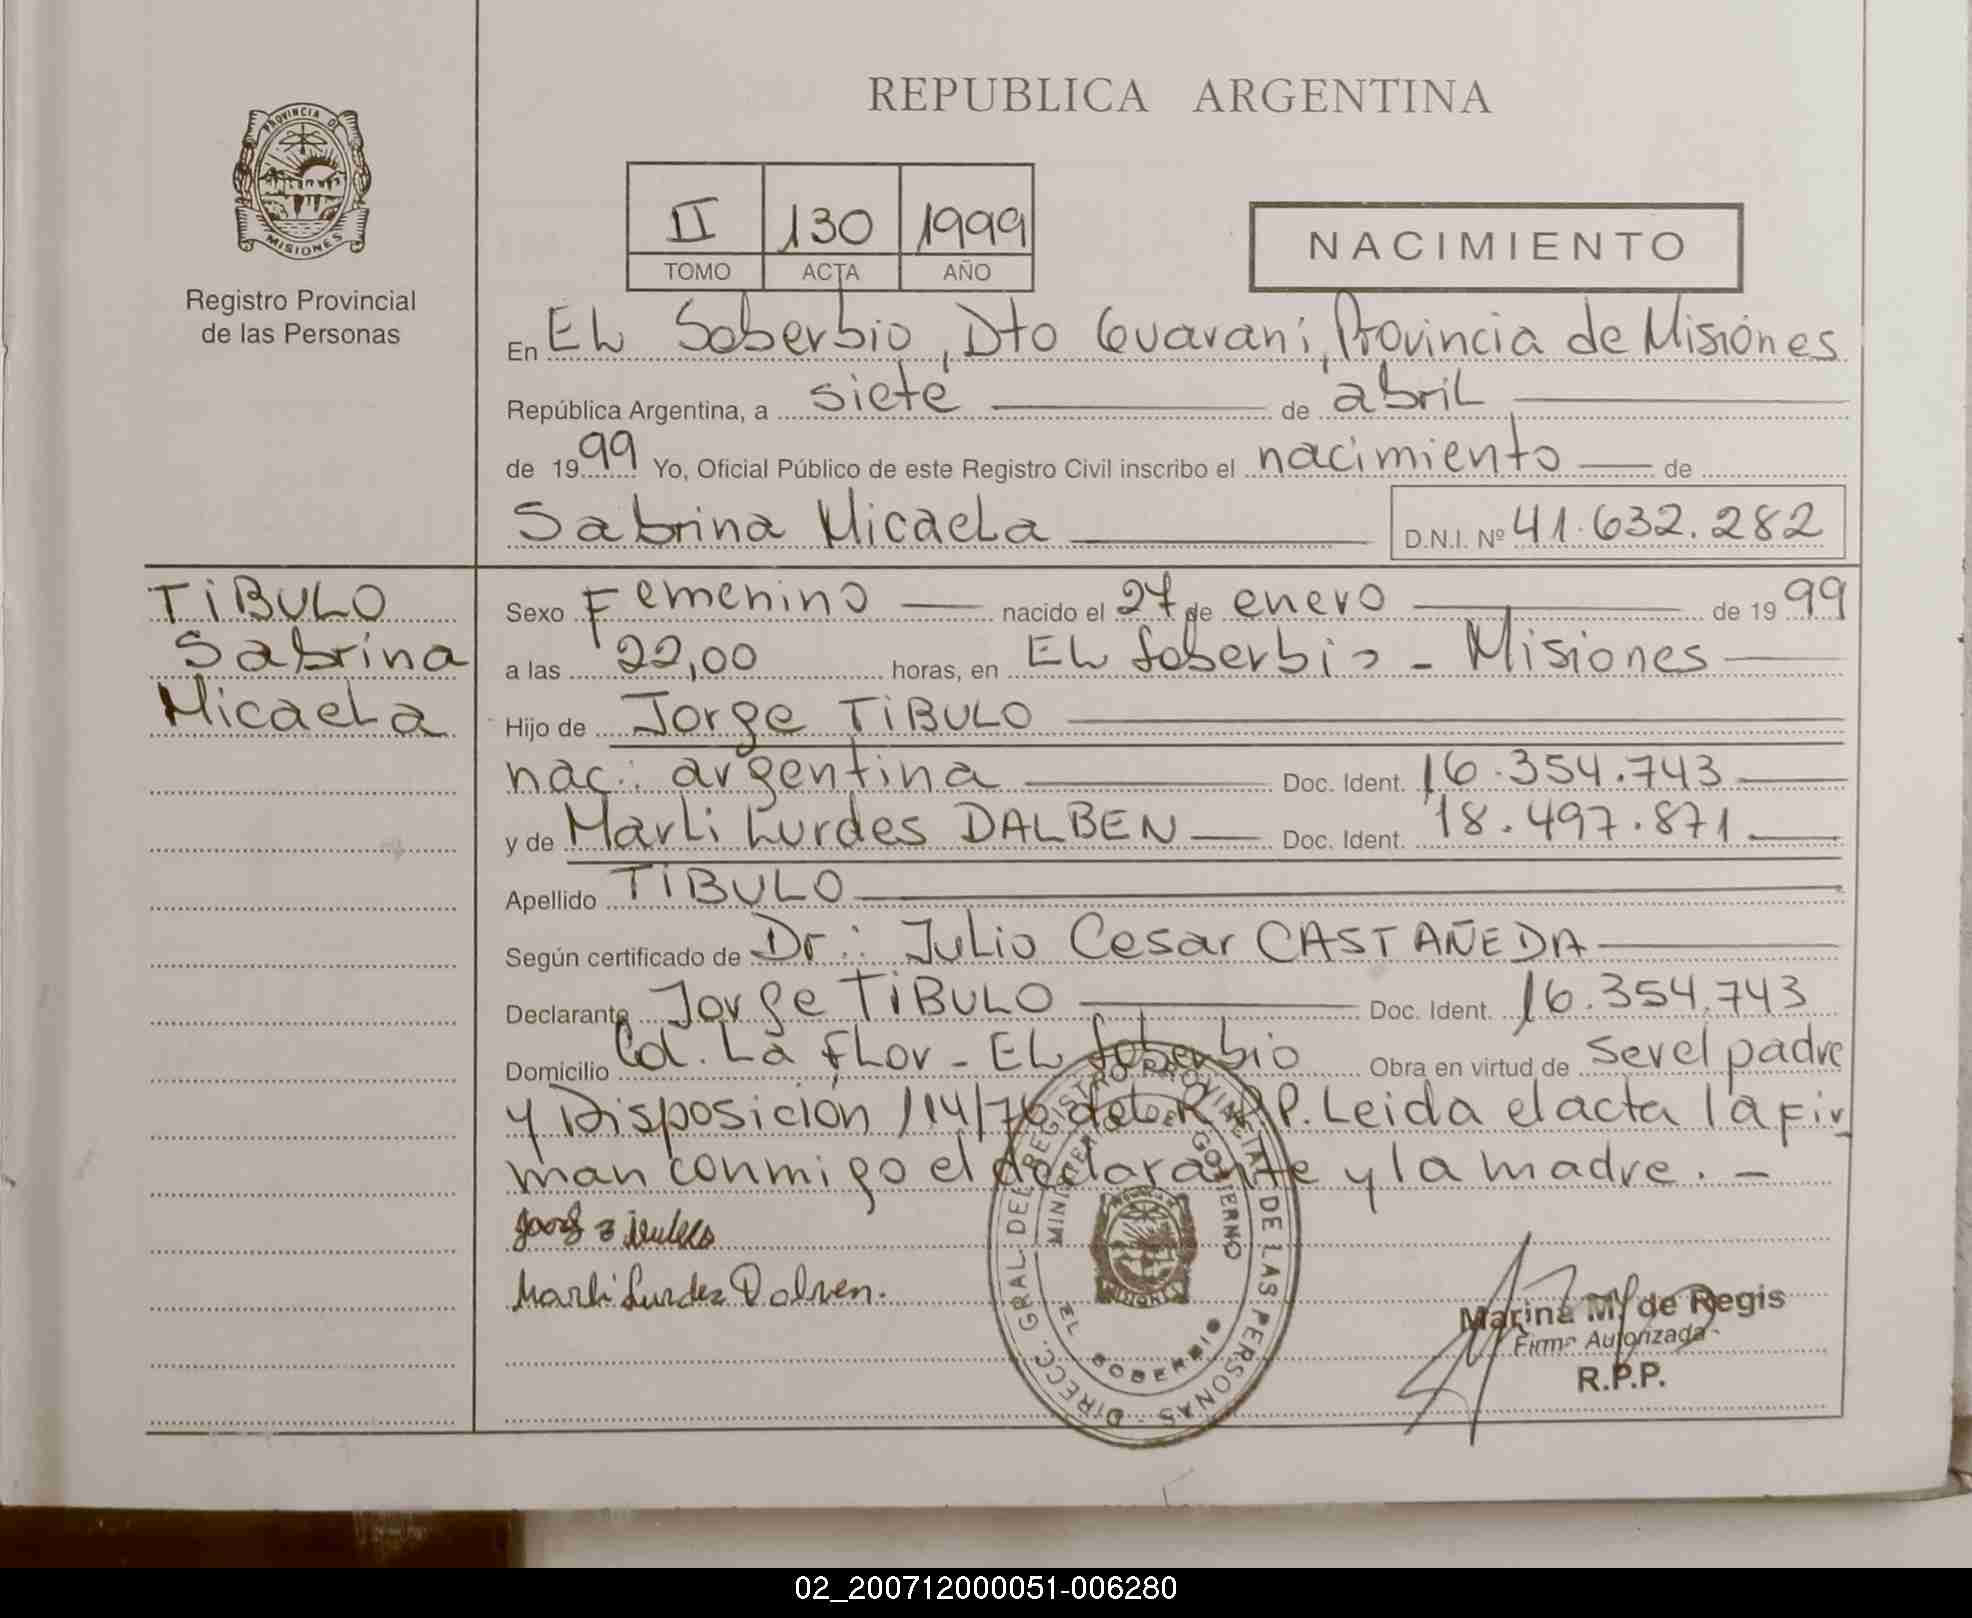 REPUBLICA ARGENTINA
PROVINCIA DE
MISIONES
Registro Provincial
de las Personas
II 130 1999
TOMO ACTA AÑO
NACIMIENTO
En EL Soberbio, Dto Guarani, Provincia de Misiones
República Argentina, a siete de abril
de 1999 Yo, Oficial Público de este Registro Civil inscribo el nacimiento de
Sabrina Micaela D.N.I. Nº 41.632.282
TIBULO
Sabrina
Micaela
Sexo Femenino nacido el 27 de enero de 1999
a las 22,00 horas, en EL Soberbio - Misiones
Hijo de Jorge TIBULO
nac.: argentina Doc. Ident. 16.354.743
y de Marli Lurdes DALBEN Doc. Ident. 18.497.871
Apellido TIBULO
Según certificado de Dr.: Julio Cesar CASTAÑEDA
Declarante Jorge TIBULO Doc. Ident. 16.354.743
Domicilio Col. La Flor - EL Soberbio Obra en virtud de ser el padre
y Disposición 114/76 del R.P.P. Leida el acta la fir
man conmigo el declarante y la madre. -
Marli Lurdez Dalven.
DIRECC. GRAL DEL REGISTRO PROVINCIAL DE LAS PERSONAS
MINISTERIO DE GOBIERNO
EL SOBERBIO
Marina M. de Regis
Firma Autorizada
R.P.P.
02_200712000051-006280